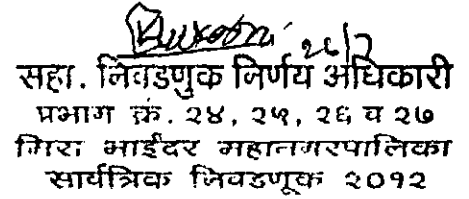 26/2
सहा. निवडणुक निर्णय अधिकारी
प्रभाग क्रं. २४, २५, २६ व २७
मिरा भाईंदर महानगरपालिका
सार्वत्रिक निवडणूक २०१२